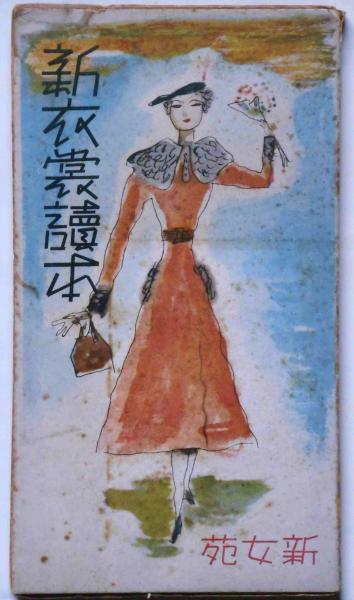 新衣裳讀本
新女苑